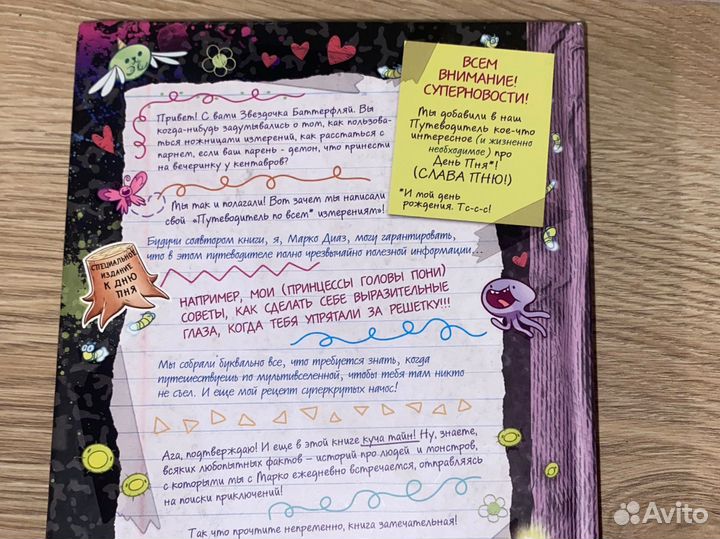 Привет! С вами Звездочка Баттерфляй. Вы
когда-нибудь задумывались о том, как пользова-
ться ножницами измерений, как расстаться с
парнем, если ваш парень - демон, что принести
на вечеринку у кентавров?
Мы так и полагали! Вот зачем мы написали
свой «Путеводитель по всем* измерениям»!
Будучи соавтором книги, я, Марко Диаз, могу гарантировать,
что в этом путеводителе полно чрезвычайно полезной информации...
НАПРИМЕР, МОИ (ПРИНЦЕССЫ ГОЛОВЫ ПОНИ)
СОВЕТЫ, КАК СДЕЛАТЬ СЕБЕ ВЫРАЗИТЕЛЬНЫЕ
ГЛАЗА, КОГДА ТЕБЯ УПРЯТАЛИ ЗА РЕШЕТКУ!!!
Мы собрали буквально все, что требуется знать, когда
путешествуешь по мультивселенной, чтобы тебя там никто
не съел. И еще мой рецепт суперкрутых начос!
Ага, подтверждаю! И еще в этой книге куча тайн! Ну, знаете,
всяких любопытных фактов – историй про людей и монстров,
с которыми мы с Марко ежедневно встречаемся, отправляясь
на поиски приключений!
Так что прочтите непременно, книга замечательная!
ВСЕМ
ВНИМАНИЕ!
СУПЕРНОВОСТИ!
Мы добавили в наш
Путеводитель кое-что
интересное (и жизненно
необходимое) про
День Пня*!
(СЛАВА ПНЮ!)
*И мой день
рождения. Тс-с-с!
СПЕЦИАЛЬНОЕ
ИЗДАНИЕ
К ДНЮ
ПНЯ
Avito